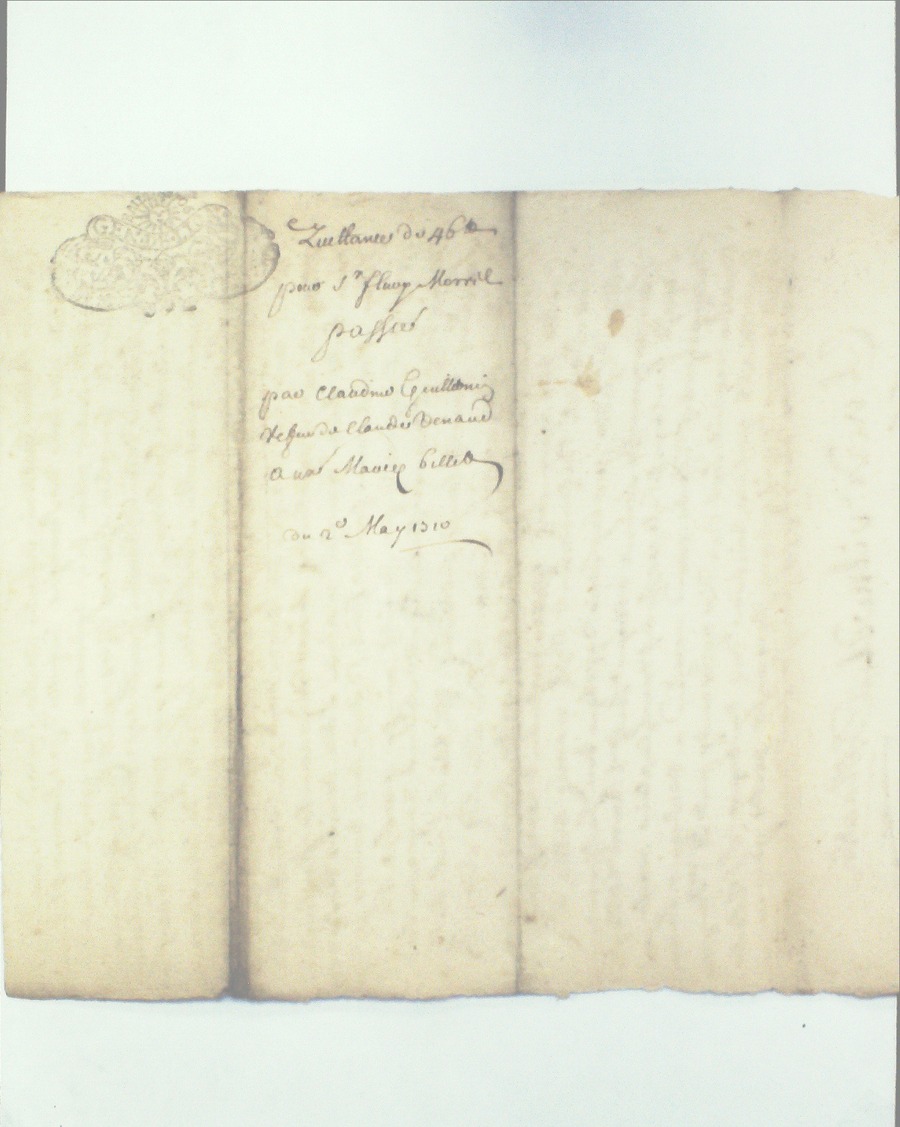 Quittance de 46 lt
pour Sr fleury Morrel
passée
par Claudine
vefve de Claude Denaud
a Marie billet
du 2e May 1710